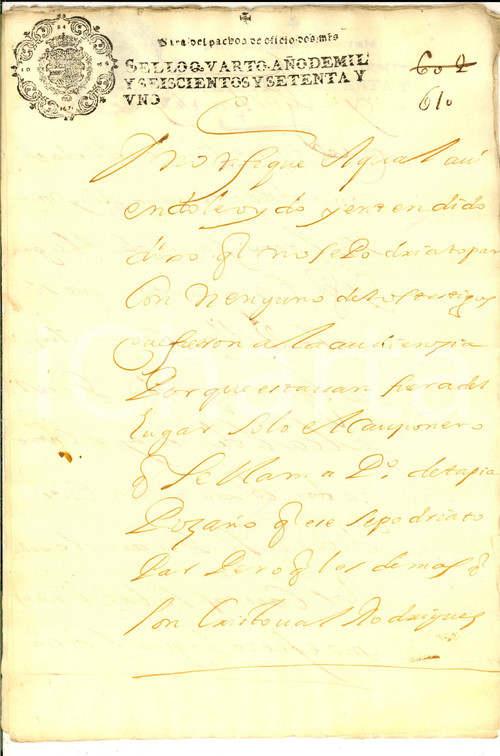 Para despachos de oficio dos mrs
SELLO QVARTO, AÑO DE MIL
Y SEISCIENTOS Y SETENTA Y
VNO
602
610
notifique Aqual aui
endolo oydo y entendido
dixo q no se Podria topar
Con Nenguno de los testigos
que fueron a la audienzia
Porque estauan fuera del
Lugar Solo el Campanero
q Se llama Po. de tapia
Lozano q ese Si podria to
Par Pero q los demas q
Son Cristoual Rodrigues